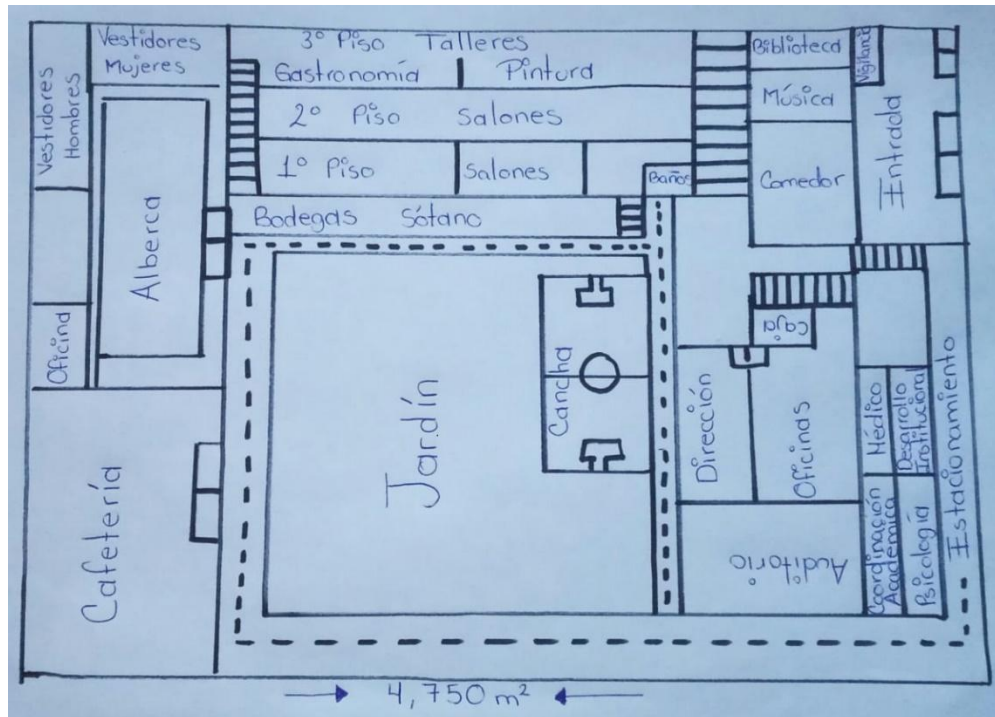 Vestidores
Hombres
Vestidores
Mujeres
3° Piso Talleres
Gastronomía
Pintura
2° Piso Salones
1° Piso
Salones
Baños
Bodegas Sótano
Biblioteca
Música
Comedor
Vigilancia
Entrada
Alberca
Oficina
Cafetería
Jardín
Cancha
Caja
Dirección
Oficinas
Médico
Desarrollo
Institucional
Coordinación
Académica
Psicología
Auditorio
Estacionamiento
4,750 m²